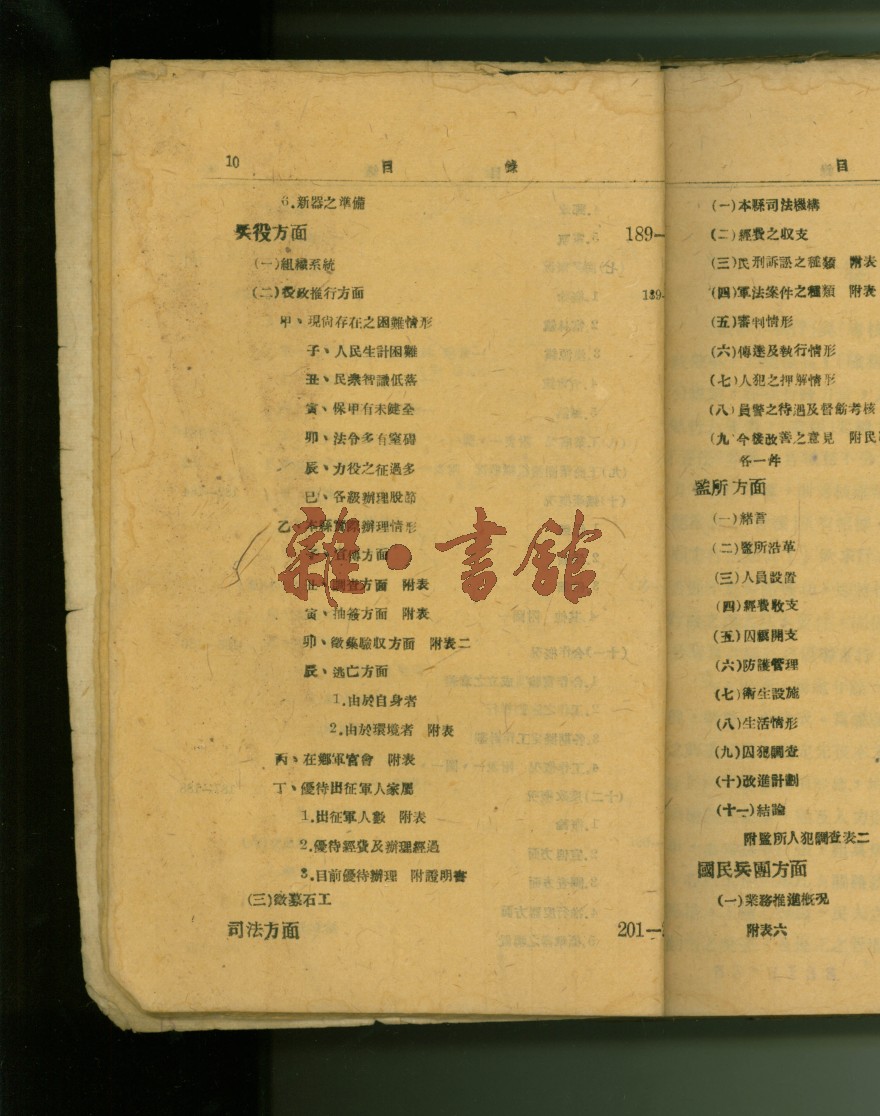 10 目 錄
6.新器之準備
兵役方面 189—
(一)組織系統
(二)役政推行方面 189-
甲、現尚存在之困難情形
子、人民生計困難
丑、民衆智識低落
寅、保甲有未健全
卯、法令多有窒礙
辰、力役之征過多
巳、各級辦理脫節
乙、本縣實際辦理情形
子、宣傳方面
丑、調查方面 附表
寅、抽簽方面 附表
卯、徵集驗収方面 附表二
辰、逃亡方面
1.由於自身者
2.由於環境者 附表
丙、在鄉軍官會 附表
丁、優待出征軍人家屬
1.出征軍人數 附表
2.優待經費及辦理經過
3.目前優待辦理 附證明書
(三)徵募石工
司法方面 201—
雜·書館
目
(一)本縣司法機構
(二)經費之収支
(三)民刑訴訟之種類 附表
(四)軍法案件之種類 附表
(五)審判情形
(六)傳達及執行情形
(七)人犯之押解情形
(八)員警之待遇及督飭考核
(九 今後改善之意見 附民
各一件
監所方面
(一)緒言
(二)監所沿革
(三)人員設置
(四)經費收支
(五)囚糧開支
(六)防護管理
(七)衛生設施
(八)生活情形
(九)囚犯調查
(十)改進計劃
(十一)結論
附監所人犯調查表二
國民兵團方面
(一)業務推進概況
附表六